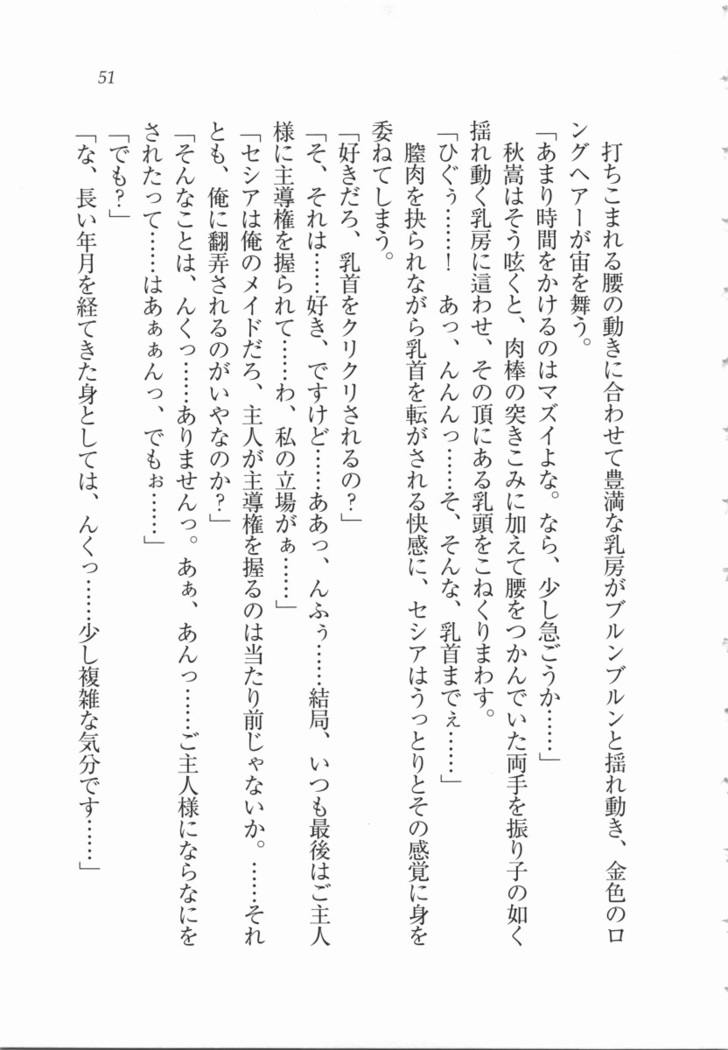 51
打ちこまれる腰の動きに合わせて豊満な乳房がブルンブルンと揺れ動き、金色のロ
ングヘアーが宙を舞う。
「あまり時間をかけるのはマズイよな。なら、少し急ごうか……」
秋嵩はそう呟くと、肉棒の突きこみに加えて腰をつかんでいた両手を振り子の如く
揺れ動く乳房に這わせ、その頂にある乳頭をこねくりまわす。
「ひぐぅ……！　あっ、んんんっ……そ、そんな、乳首までぇ……」
膣肉を抉られながら乳首を転がされる快感に、セシアはうっとりとその感覚に身を
委ねてしまう。
「好きだろ、乳首をクリクリされるの？」
「そ、それは……好き、ですけど……ああっ、んふぅ……結局、いつも最後はご主人
様に主導権を握られて……わ、私の立場がぁ……」
「セシアは俺のメイドだろ、主人が主導権を握るのは当たり前じゃないか。……それ
とも、俺に翻弄されるのがいやなのか？」
「そんなことは、んくっ……ありませんっ。あぁ、あんっ……ご主人様にならなにを
されたって……はあぁぁんっ、でもぉ……」
「でも？」
「な、長い年月を経てきた身としては、んくっ……少し複雑な気分です……」